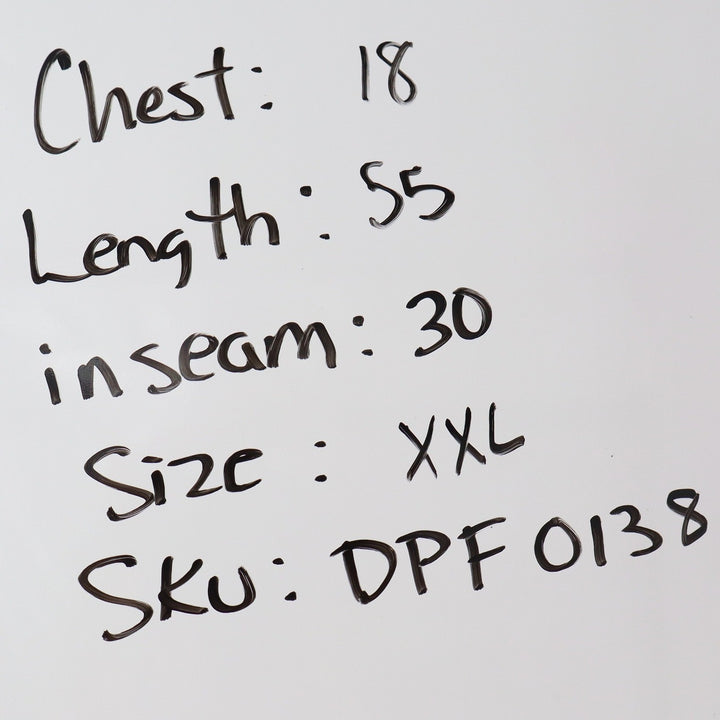 Chest: 18
Length: 55
inseam: 30
Size: XXL
SKU: DPF 0138